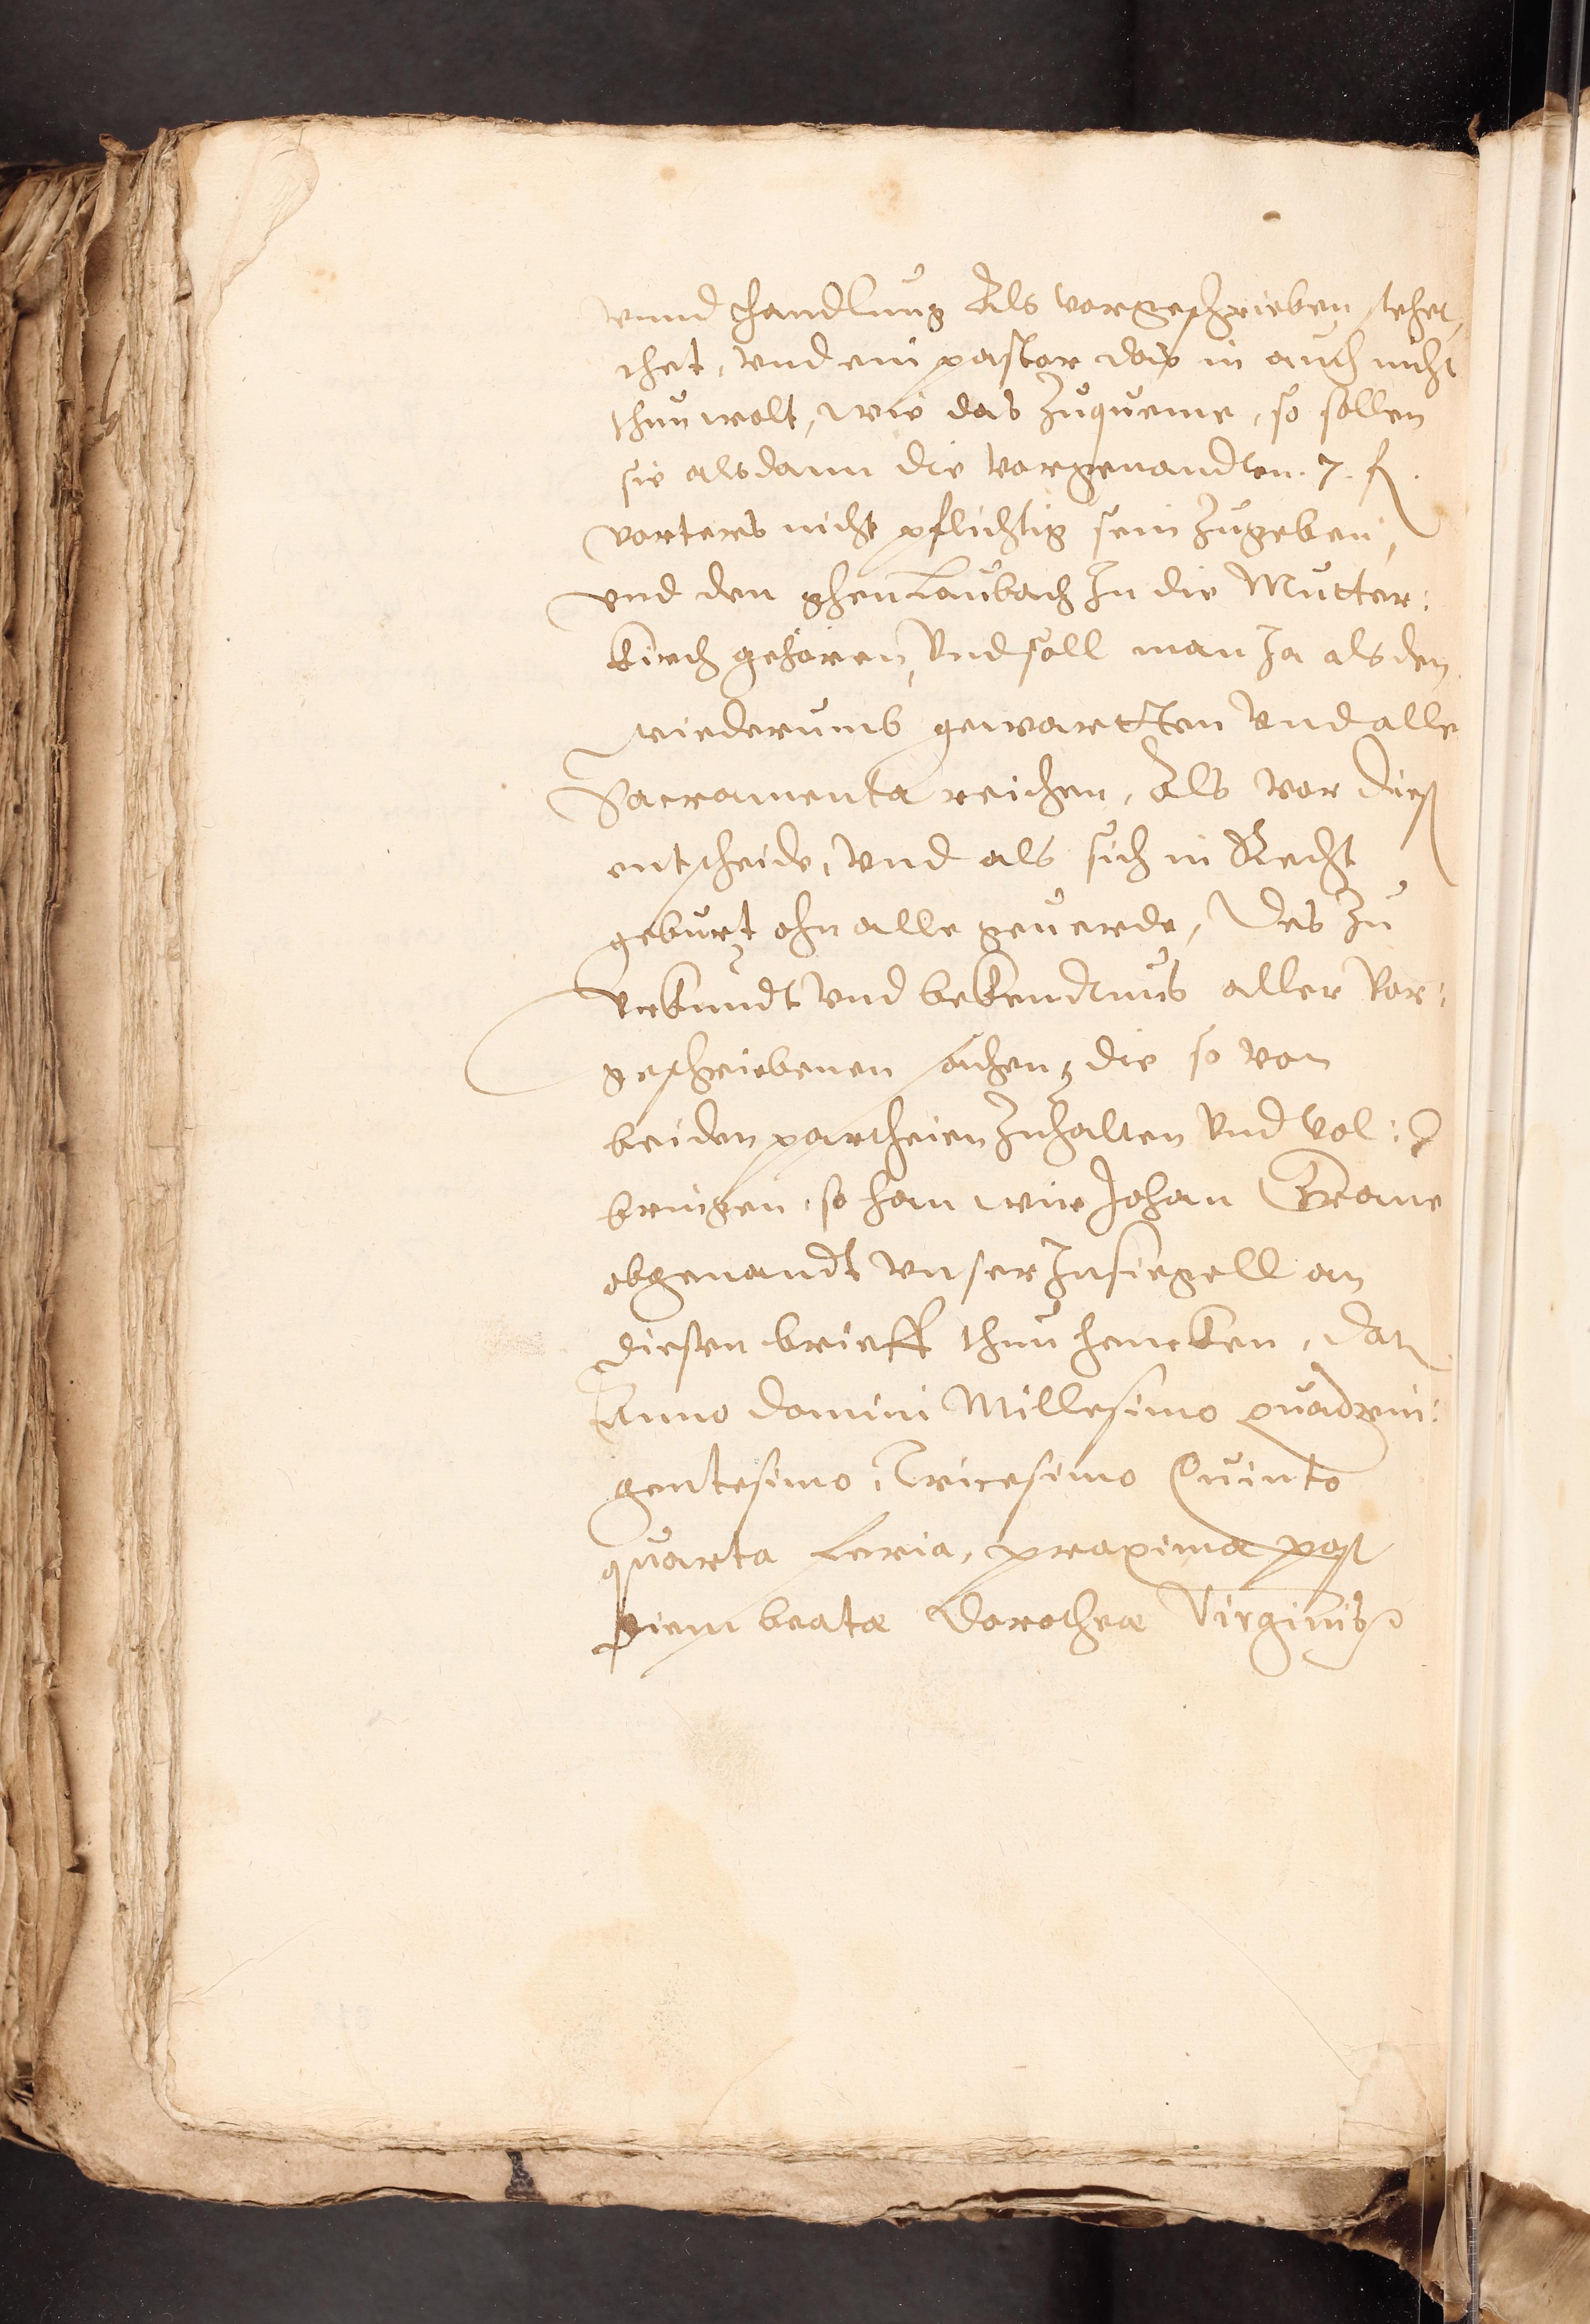 vnnd handlung Als vorgeschrieben stehet,
thet, vnd ein pastor das in auch nicht
thun wolt, wie das Zuqueme, so sollen
sie alsdann die vorgenandten .7. fl.
vorters nicht pflichtig sein Zugeben,
vnd den ghen Laubach In die Mutter:
kirch gehoren, Vnd soll man Ja alsden
wiederumb gewartten Vnd alle
Sacramenta reichen, Als vor dieß
entscheide, Vnd als sich in Recht
geburt ohn alle geuerde, Des Zu
Vrkundt Vnd bekendtnus aller Vor:
geschriebenen sachen, die so von
beiden partheien Zuhalten Vnd Vol:
bringen, so han wir Johan
obgenandt Vnser Insiegell an
diesen brieff thun hencken, Dat.
Anno domini Millesimo quadrin:
gentesimo, Tricesimo Quinto
quarta feria, proxima post
diem beatæ Dorotheæ Virginis